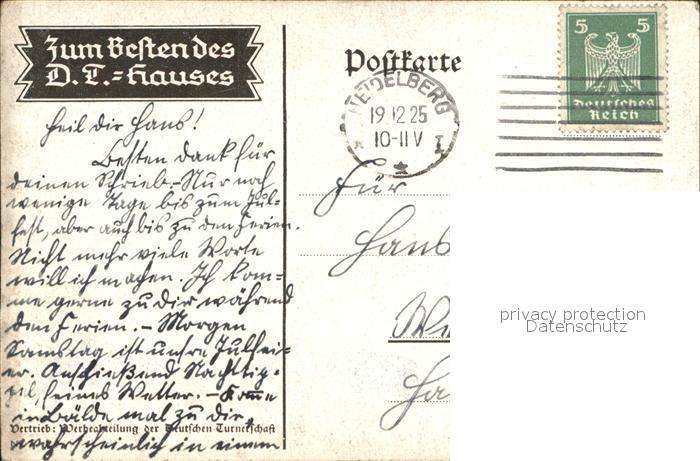 Zum Besten des
D. T.=Hauses
Postkarte
HEIDELBERG
19.12.25
10-11 V
5 5
Deutsches
Reich
Heil dir Hans!
Besten Dank für
deinen Schrieb.- Nur noch
wenige Tage bis zum Jul-
fest, aber auch bis zu den Ferien.
Nicht mehr viele Worte
will ich machen. Ich kom-
me gerne zu dir während
den Ferien. - Morgen
Samstag ist unsre Julfei-
er. Anschießend
feines Wetter. - Komme
in Bälde mal zu dir,
wahrscheinlich in einem
Vertrieb: Werbeabteilung der Deutschen Turnerschaft
Für
Hans
We
Ha
privacy protection
Datenschutz